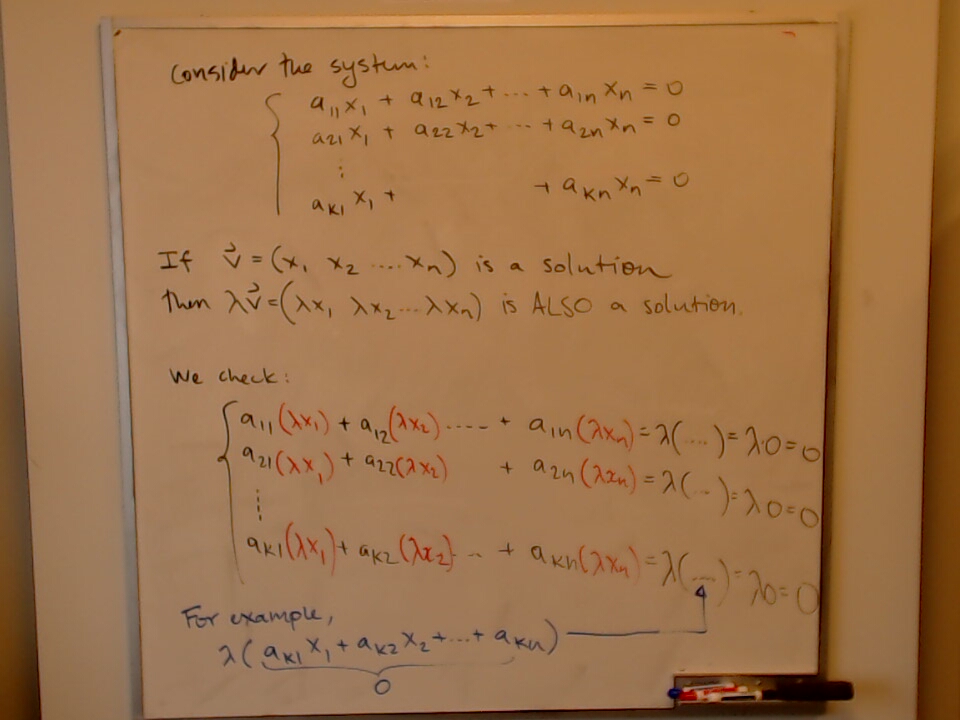 Consider the system:
a₁₁x₁ + a₁₂x₂ + ... + a₁ₙxₙ = 0
a₂₁x₁ + a₂₂x₂ + ... + a₂ₙxₙ = 0
⋮
aₖ₁x₁ + + aₖₙxₙ = 0
If v⃗ = (x₁ x₂ .... xₙ) is a solution
then λv⃗ = (λx₁ λx₂ ... λxₙ) is ALSO a solution.
We check:
a₁₁(λx₁) + a₁₂(λx₂) ..... + a₁ₙ(λxₙ) = λ(....) = λ·0 = 0
a₂₁(λx₁) + a₂₂(λx₂) + a₂ₙ(λxₙ) = λ(...) = λ0 = 0
⋮
aₖ₁(λx₁) + aₖ₂(λx₂) ... + aₖₙ(λxₙ) = λ(....) = λ0 = 0
For example,
λ(aₖ₁x₁ + aₖ₂x₂ + ... + aₖₙ)
0